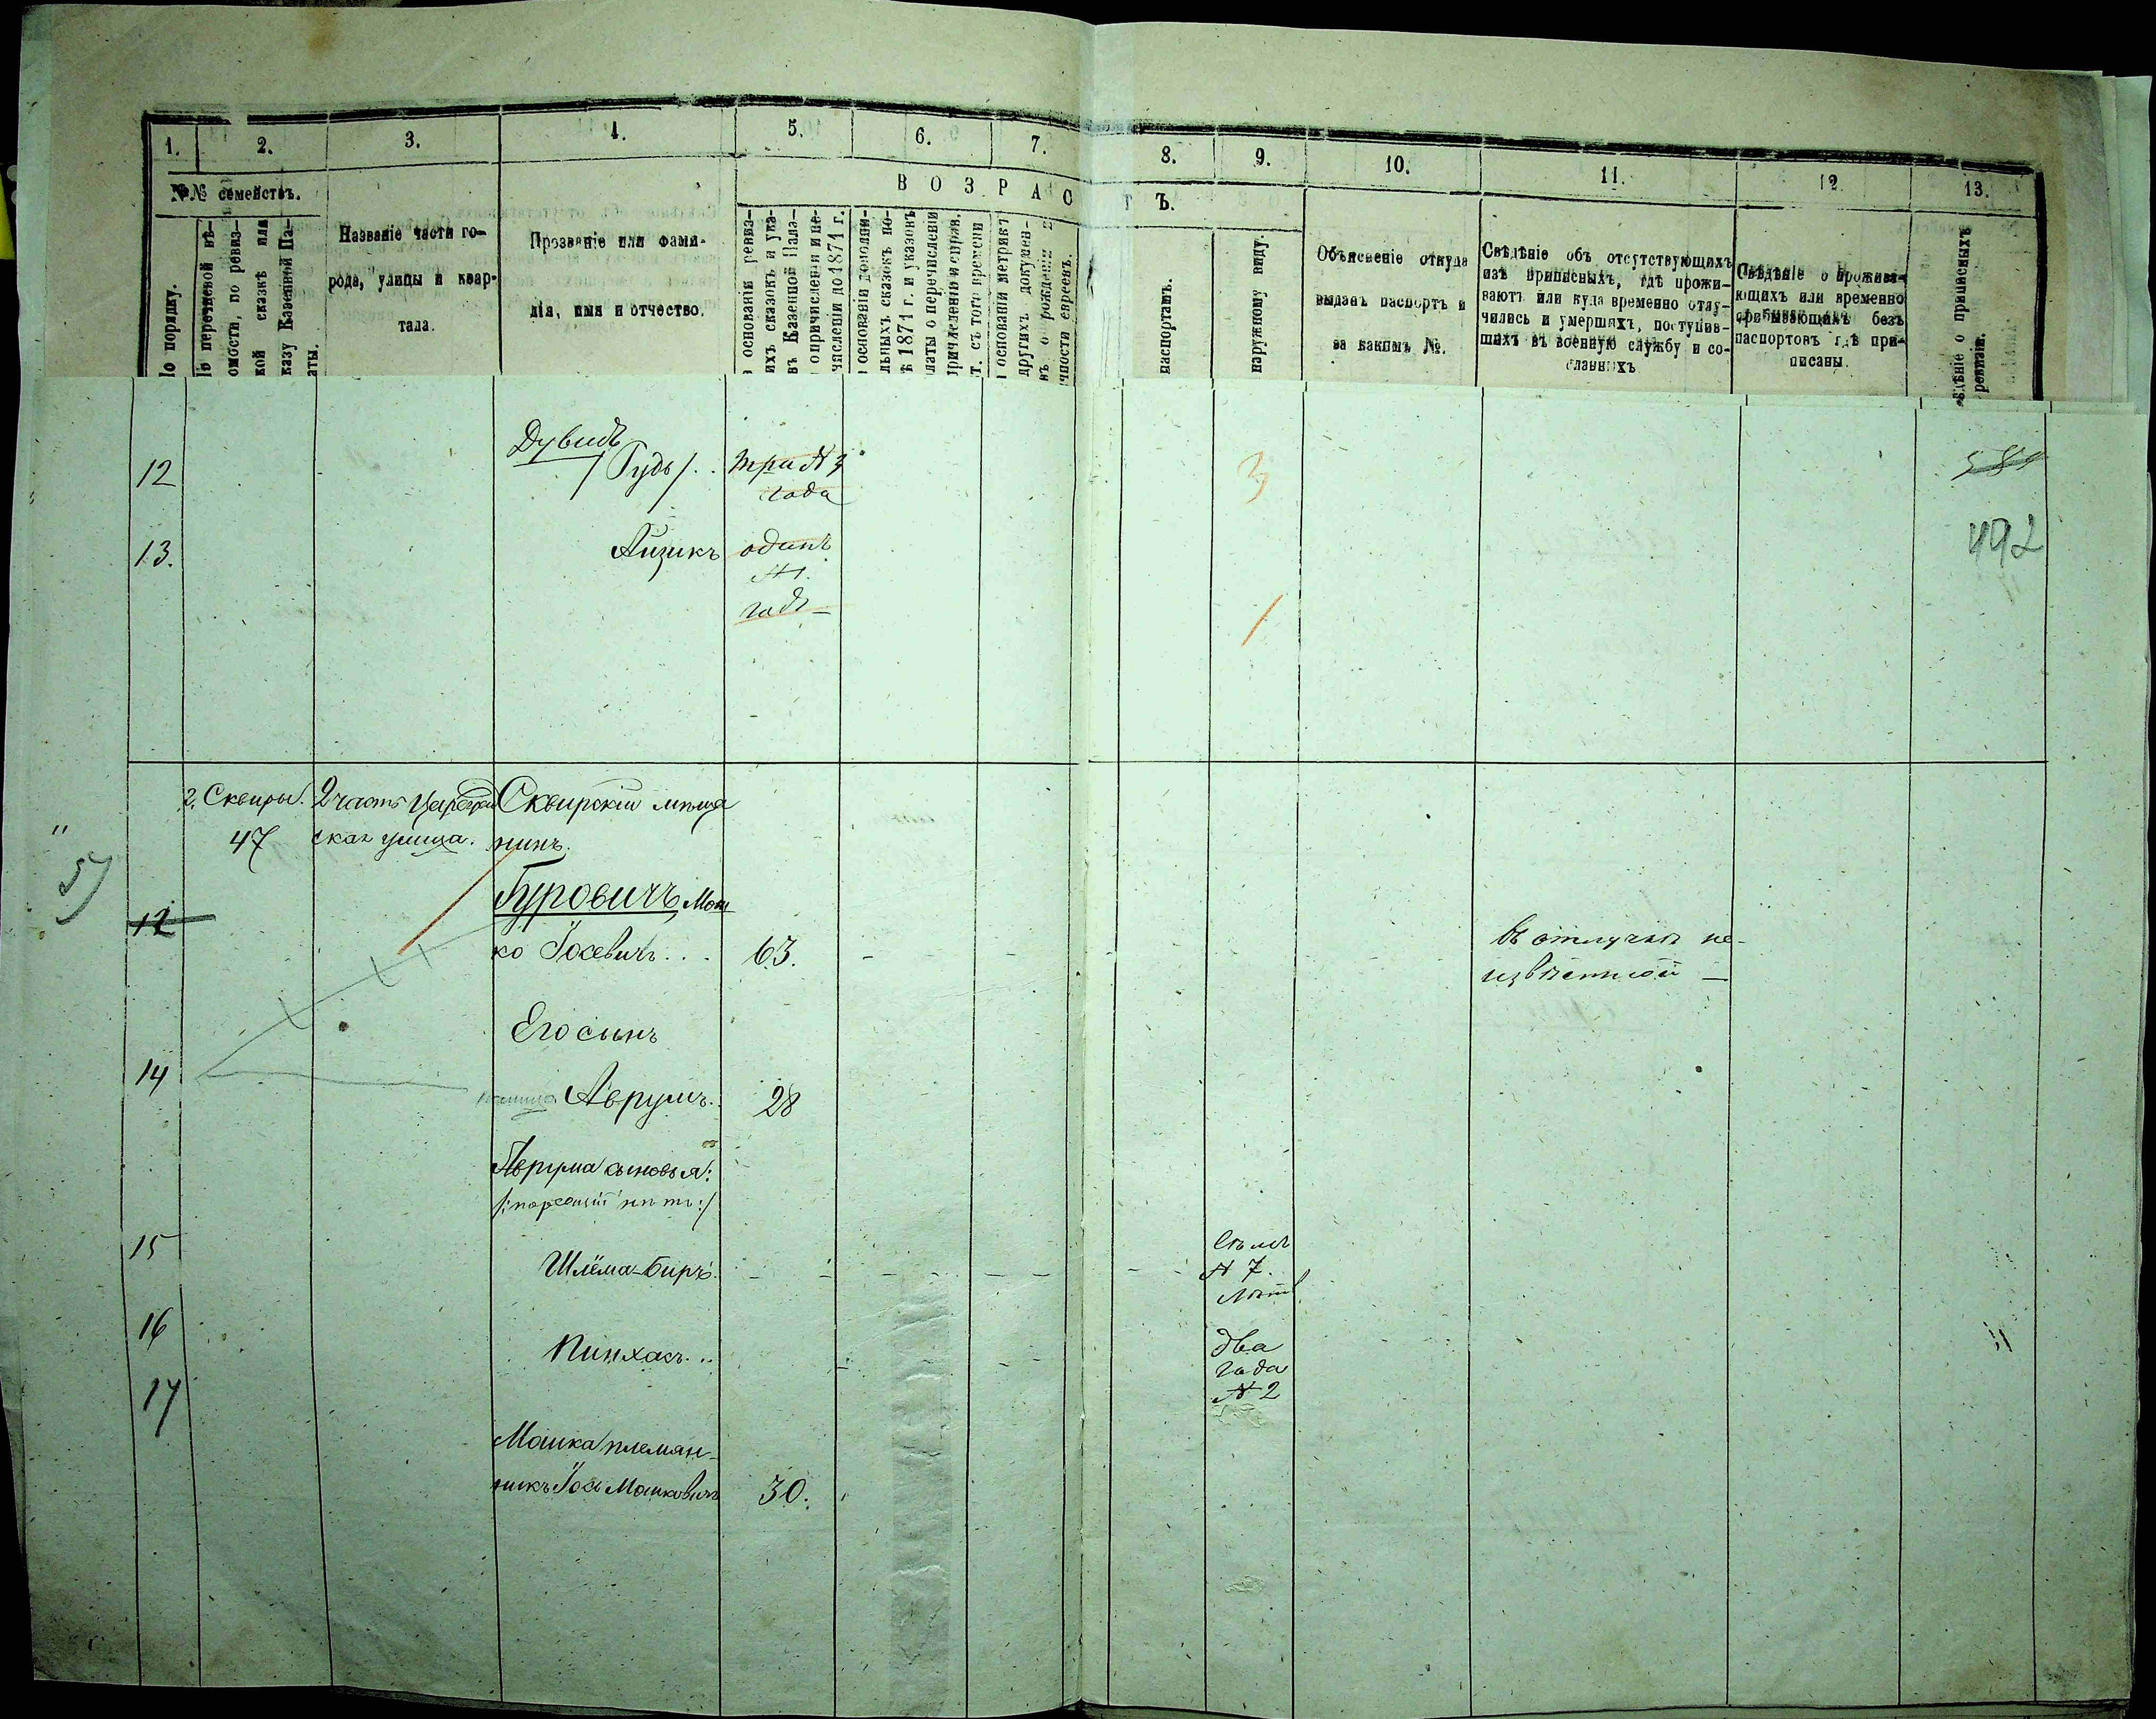 1.
2.
3.
4.
5.
6.
7.
8.
9.
10.
11.
12.
13.
№№ семействъ.
ВОЗРАСТЪ.
По порядку.
По переписной вѣ-
омости, по ревиз-
кой сказкѣ или
казу Казенной Па-
аты.
Названіе части го-
рода, улицы и квар-
тала.
Прозваніе или фами-
лія, имя и отчество.
основаніи ревиз-
ихъ сказокъ и ука-
въ Казенной Пала-
о причисленіи и пе-
численіи до 1871 г.
основаніи дополни-
льныхъ сказокъ по-
ѣ 1871 г. и указовъ
латы о перечисленіи
причисленіи и исправ.
т. съ того времени
основаніи метрикъ
другихъ докумен-
въ о рожденіи и
чности евреевъ.
паспортамъ.
наружному виду.
Объясненіе откуда
выданъ паспортъ и
за какимъ №.
Свѣдѣніе объ отсутствующихъ
изъ приписныхъ, гдѣ прожи-
ваютъ или куда временно отлу-
чились и умершихъ, поступив-
шихъ въ военную службу и со-
сланныхъ
Свѣдѣніе о прожива-
ющихъ или временно
пребывающихъ безъ
паспортовъ гдѣ при-
писаны.
ѣдѣніе о приписныхъ
ревизіи.
Дувидъ
12 /Гудь/. три № 3 3
года
13. Айзикъ одинъ 492
№ 1.
годъ 1
г. Сквиры. 2 часть Цареград Сквирскій мѣща
47 ская улица. нинъ.
57
Гуровичъ Мош
12
ко Іосевичъ... 63. въ отлучкѣ не-
извѣстной —
Его сынъ
14
Аврумъ. 28
Аврума сыновья:
15 семь
Шлёма-Беръ № 7.
лѣтъ
16 два
Пинхасъ... года
17 № 2
Мошка племян-
никъ Іось Мошковичъ 30.